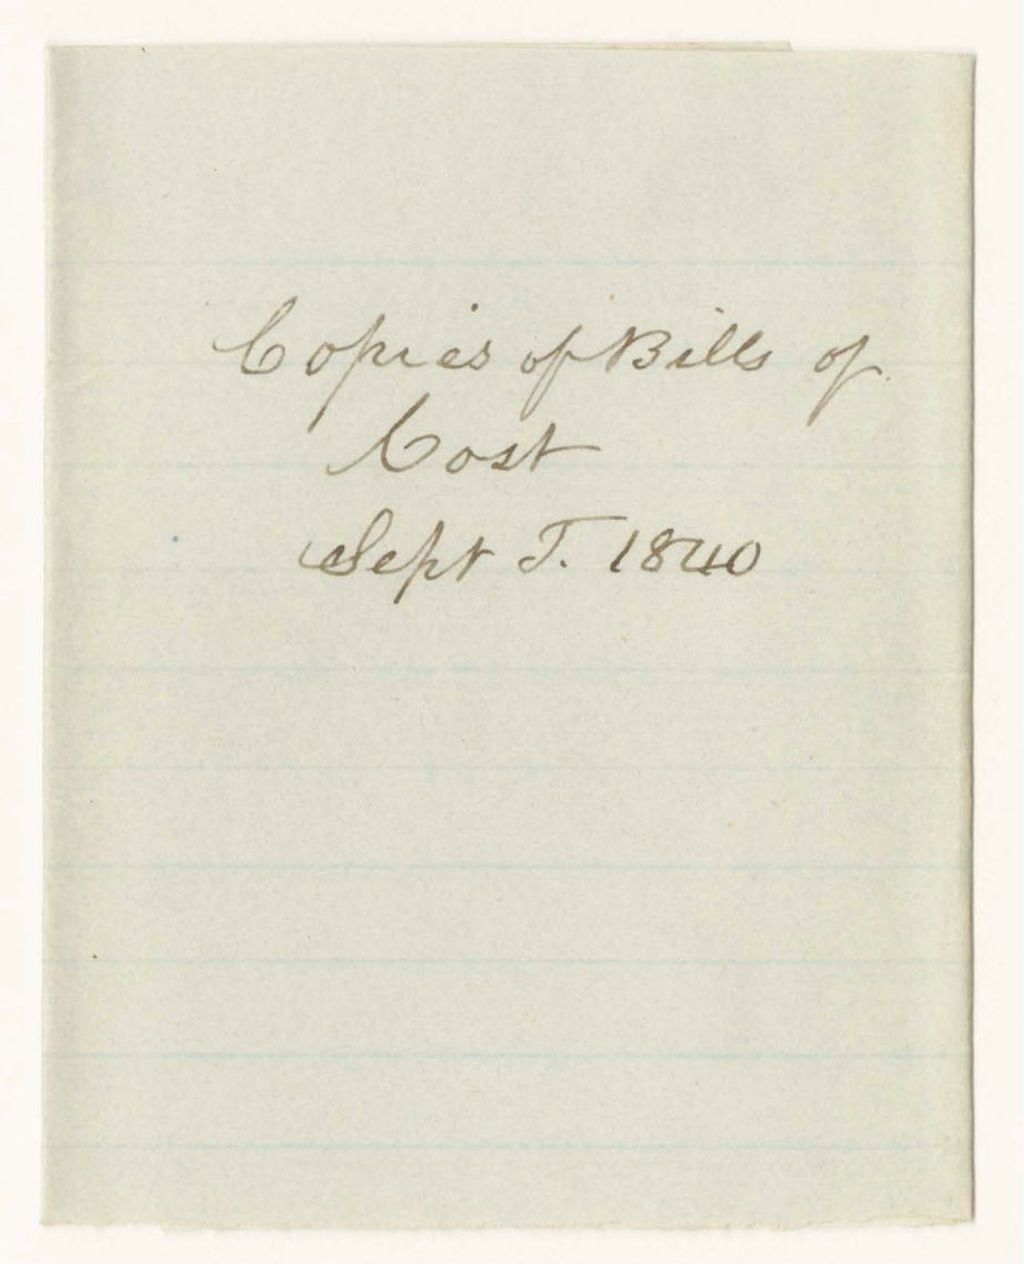 Copies of Bills of
Cost
Sept T. 1840